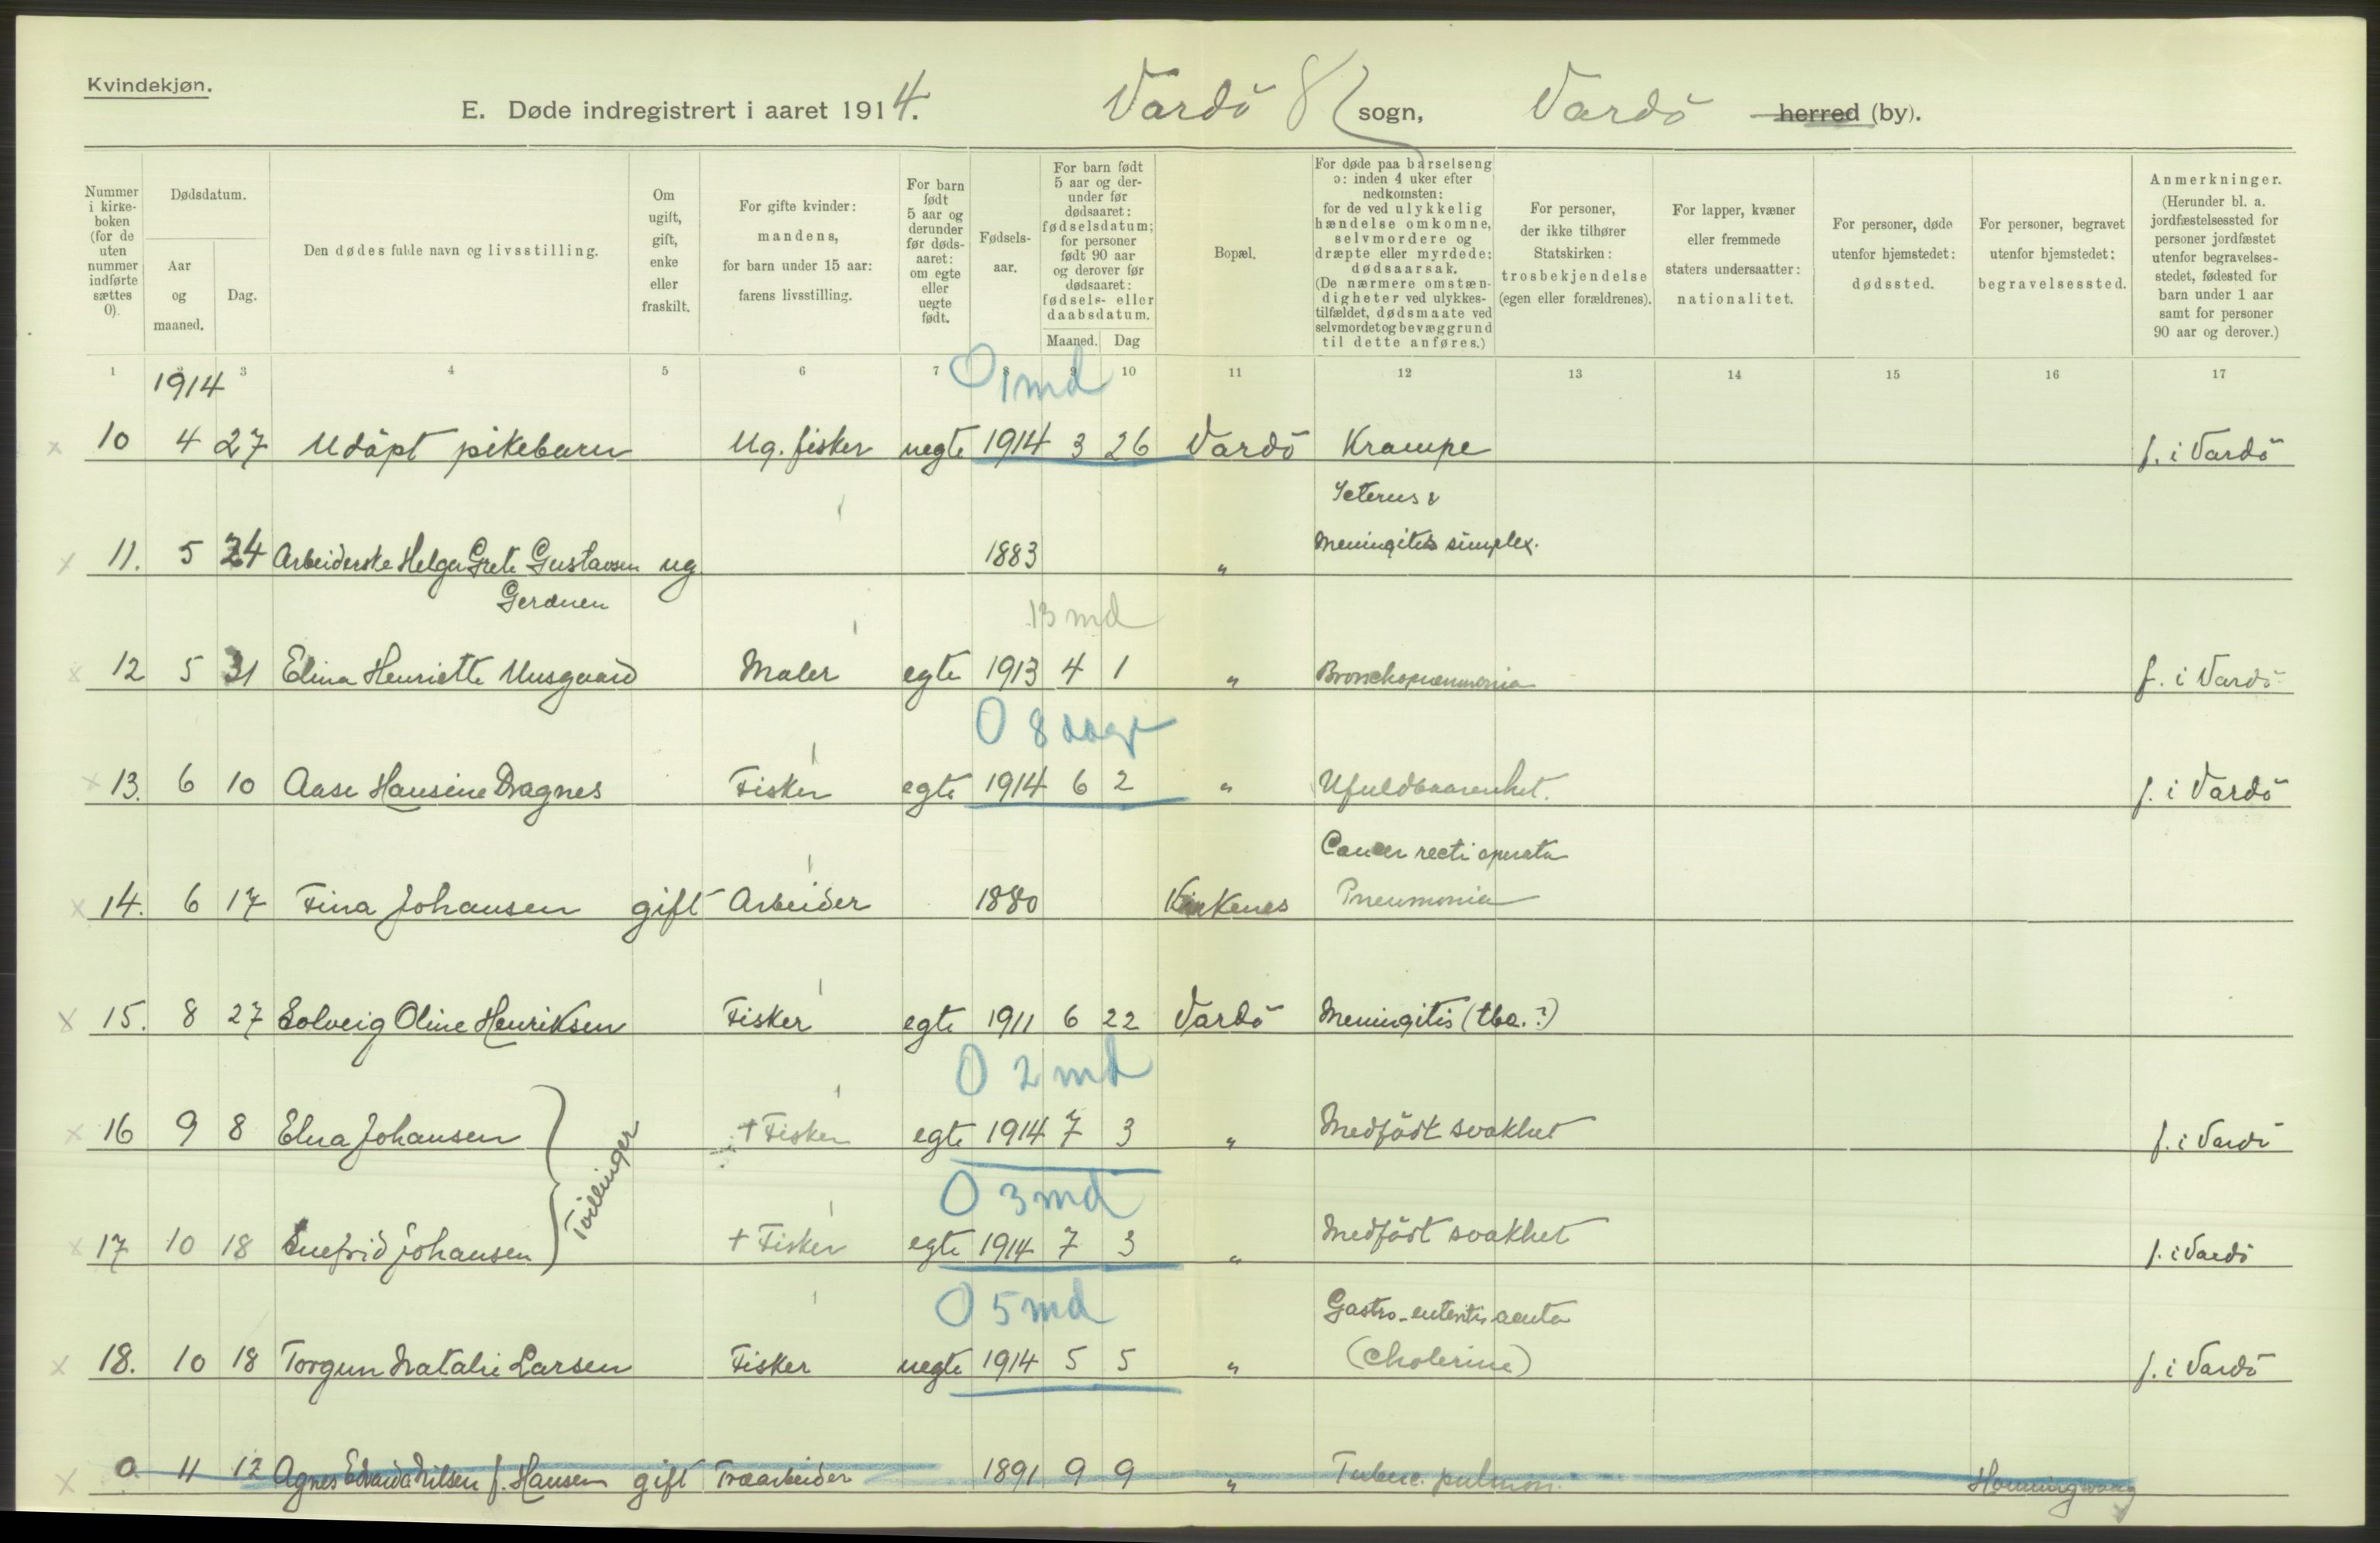 Kvindekjøn.
E. Døde indregistrert i aaret 1914. Vardö sogn, Vardö herred (by).
Nummer i kirkeboken (for de uten nummer indførte sættes 0).
Dødsdatum.
Aar og maaned.
Dag.
Den dødes fulde navn og livsstilling.
Om ugift, gift, enke eller fraskilt.
For gifte kvinder: mandens, for barn under 15 aar: farens livsstilling.
For barn født 5 aar og derunder før dødsaaret: om egte eller uegte født.
Fødselsaar.
For barn født 5 aar og derunder før dødsaaret: fødselsdatum; for personer født 90 aar og derover før dødsaaret: fødsels- eller daabsdatum.
Maaned. Dag
Bopæl.
For døde paa barselseng ɔ: inden 4 uker efter nedkomsten: for de ved ulykkelig hændelse omkomne, selvmordere og dræpte eller myrdede: dødsaarsak. (De nærmere omstændigheter ved ulykkestilfældet, dødsmaate ved selvmordet og bevæggrund til dette anføres.)
For personer, der ikke tilhører Statskirken: trosbekjendelse (egen eller forældrenes).
For lapper, kvæner eller fremmede staters undersaatter: nationalitet.
For personer, døde utenfor hjemstedet: dødssted.
For personer, begravet utenfor hjemstedet: begravelsessted.
Anmerkninger. (Herunder bl. a. jordfæstelsessted for personer jordfæstet utenfor begravelsesstedet, fødested for barn under 1 aar samt for personer 90 aar og derover.)
1 3 4 5 6 7 8 9 10 11 12 13 14 15 16 17
1914
0 1 md
10 4 27 Udöpt pikebarn Ug. fisker uegte 1914 3 26 Vardö Krampe f. i Vardö
Icterus &
11. 5 24 Arbeiderske Helga Grete Gustavsen ug. 1883 „ Meningitis simplex.
13 md
12 5 31 Elina Henriette Musgaard Maler egte 1913 4 1 „ Bronchopneumonia f. i Vardö
0 8 dage
13. 6 10 Aase Hansine Dragnes Fisker egte 1914 6 2 „ Ufuldbaarenhet. f. i Vardö
Cancer recti operata
14. 6 17 Fina Johansen gift Arbeider 1880 Kirkenes Pneumonia
15. 8 27 Solveig Oline Henriksen Fisker egte 1911 6 22 Vardö Meningitis (tbc.?)
0 2 md
16 9 8 Elna Johansen + Fisker egte 1914 7 3 „ Medfödt svakhet f. i Vardö
Tvillinger
0 3 md
17 10 18 Enefrid Johansen + Fisker egte 1914 7 3 „ Medfödt svakhet f. i Vardö
0 5 md
Gastro-enteritis acuta
18. 10 18 Torgun Natalie Larsen Fisker uegte 1914 5 5 „ (Cholerine) f. i Vardö
0. 11 12 Agnes Edvarda Nilsen f. Hansen gift Træarbeider 1891 9 9 „ Tuberc. pulmon. Honningsvaag